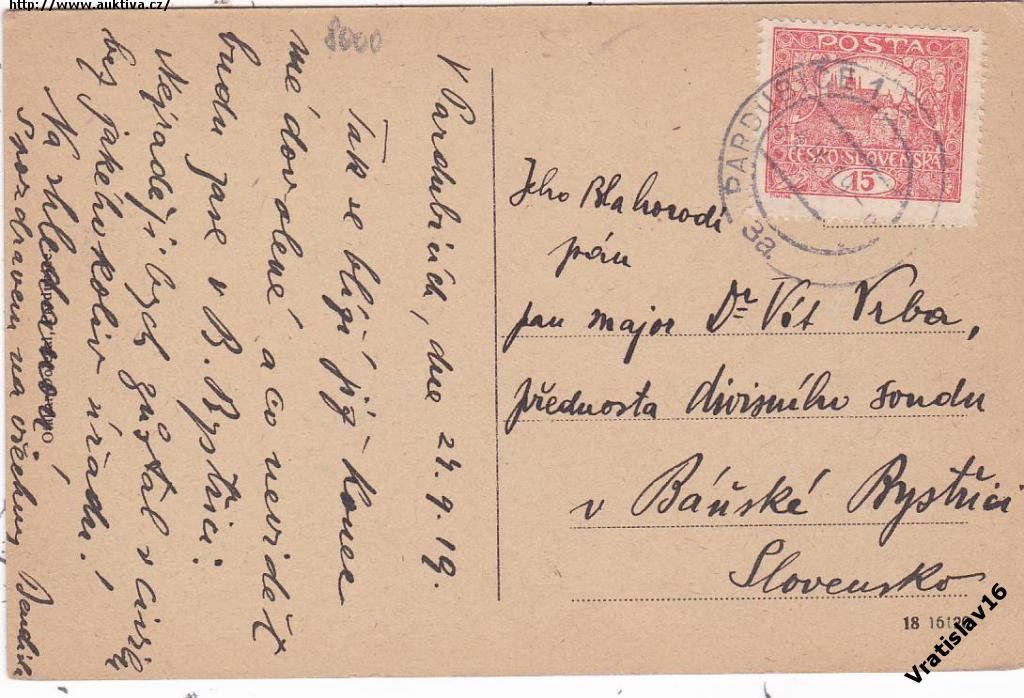 http://www.auktiva.cz/
8000
V Pardubicích, dne 24.9.19.
Tak se blíží již konec
mé dovolené a co nevidět
budu zase v B. Bystřici.
Nejraději bych zůstal v civilu
bez jakéhokoliv úřadu!
Na shledanou!
S pozdravem na všechny
POSTA
ČESKO-SLOVENSKÁ
15
PARDUBICE 1
3a
Jeho Blahorodí
pán
pan major Dr Vít Vrba,
přednosta divisního soudu
v Báňské Bystřici
Slovensko
18 16120
Vratislav16